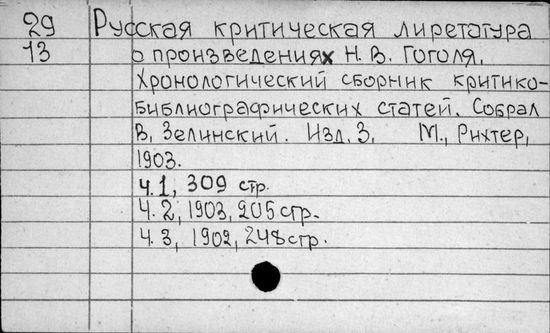 29 Русская критическая лиретатура
13 о произведениях Н. В. Гоголя.
Хронологический сборник критико-
библиографических статей. Собрал
В. Зелинский. Изд. 3. М., Рихтер,
1903.
Ч. 1, 309 стр.
Ч. 2, 1903, 205 стр.
Ч. 3, 1902, 248 стр.